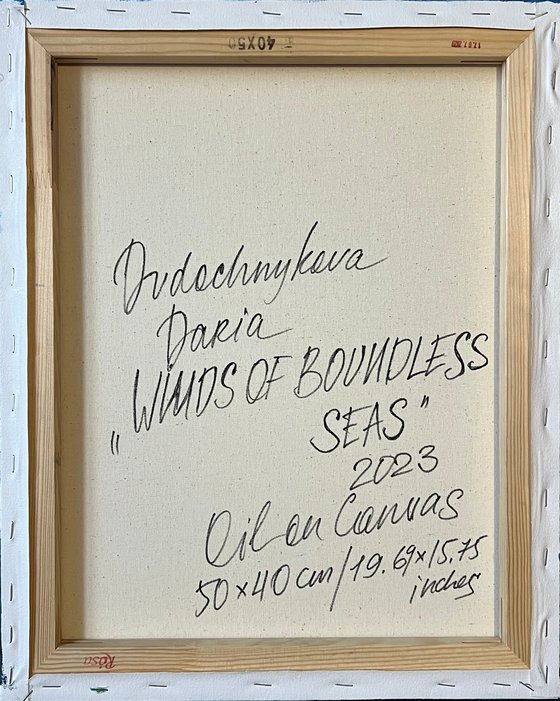 40x50
17.07.2023
Dudochnykova
Daria
„WINDS OF BOUNDLESS
SEAS”
2023
Oil on Canvas
50×40 cm/19.69×15.75
inches
Rosa